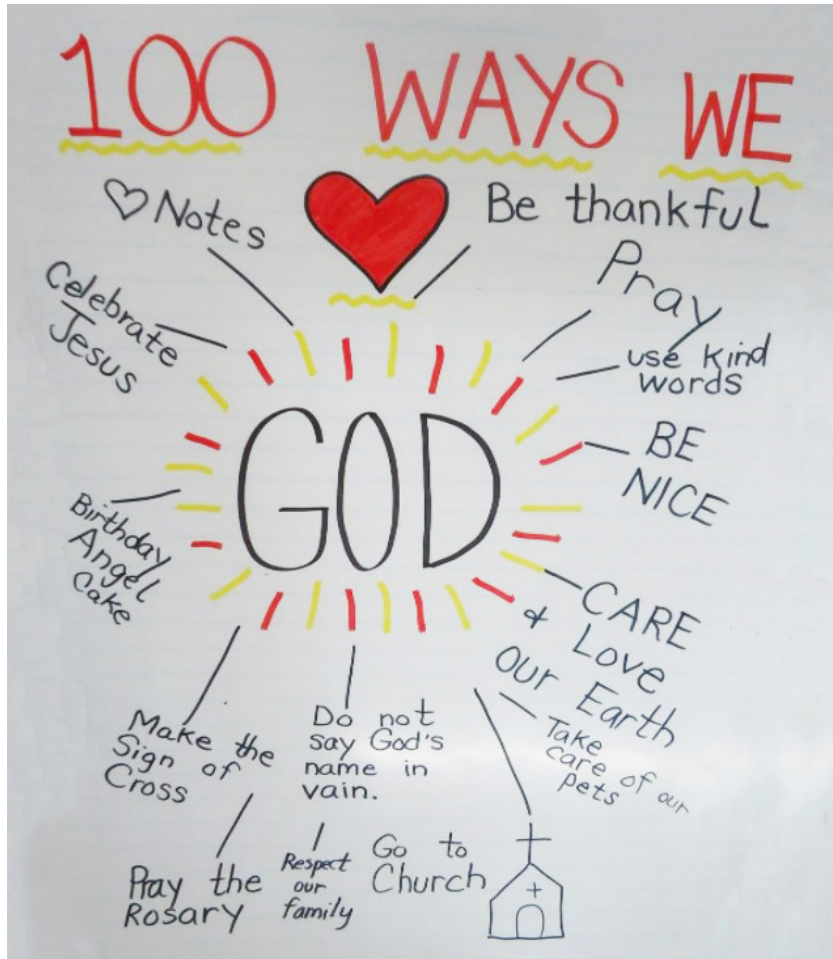 100 WAYS WE
Notes
Be thankful
Celebrate
Jesus
Pray
use kind
words
BE
NICE
GOD
Birthday
Angel
Cake
CARE
& Love
our Earth
Take
care of our
pets
Make the
Sign of
Cross
Do not
say God's
name in
vain.
Pray the
Rosary
Respect
our
family
Go to
Church